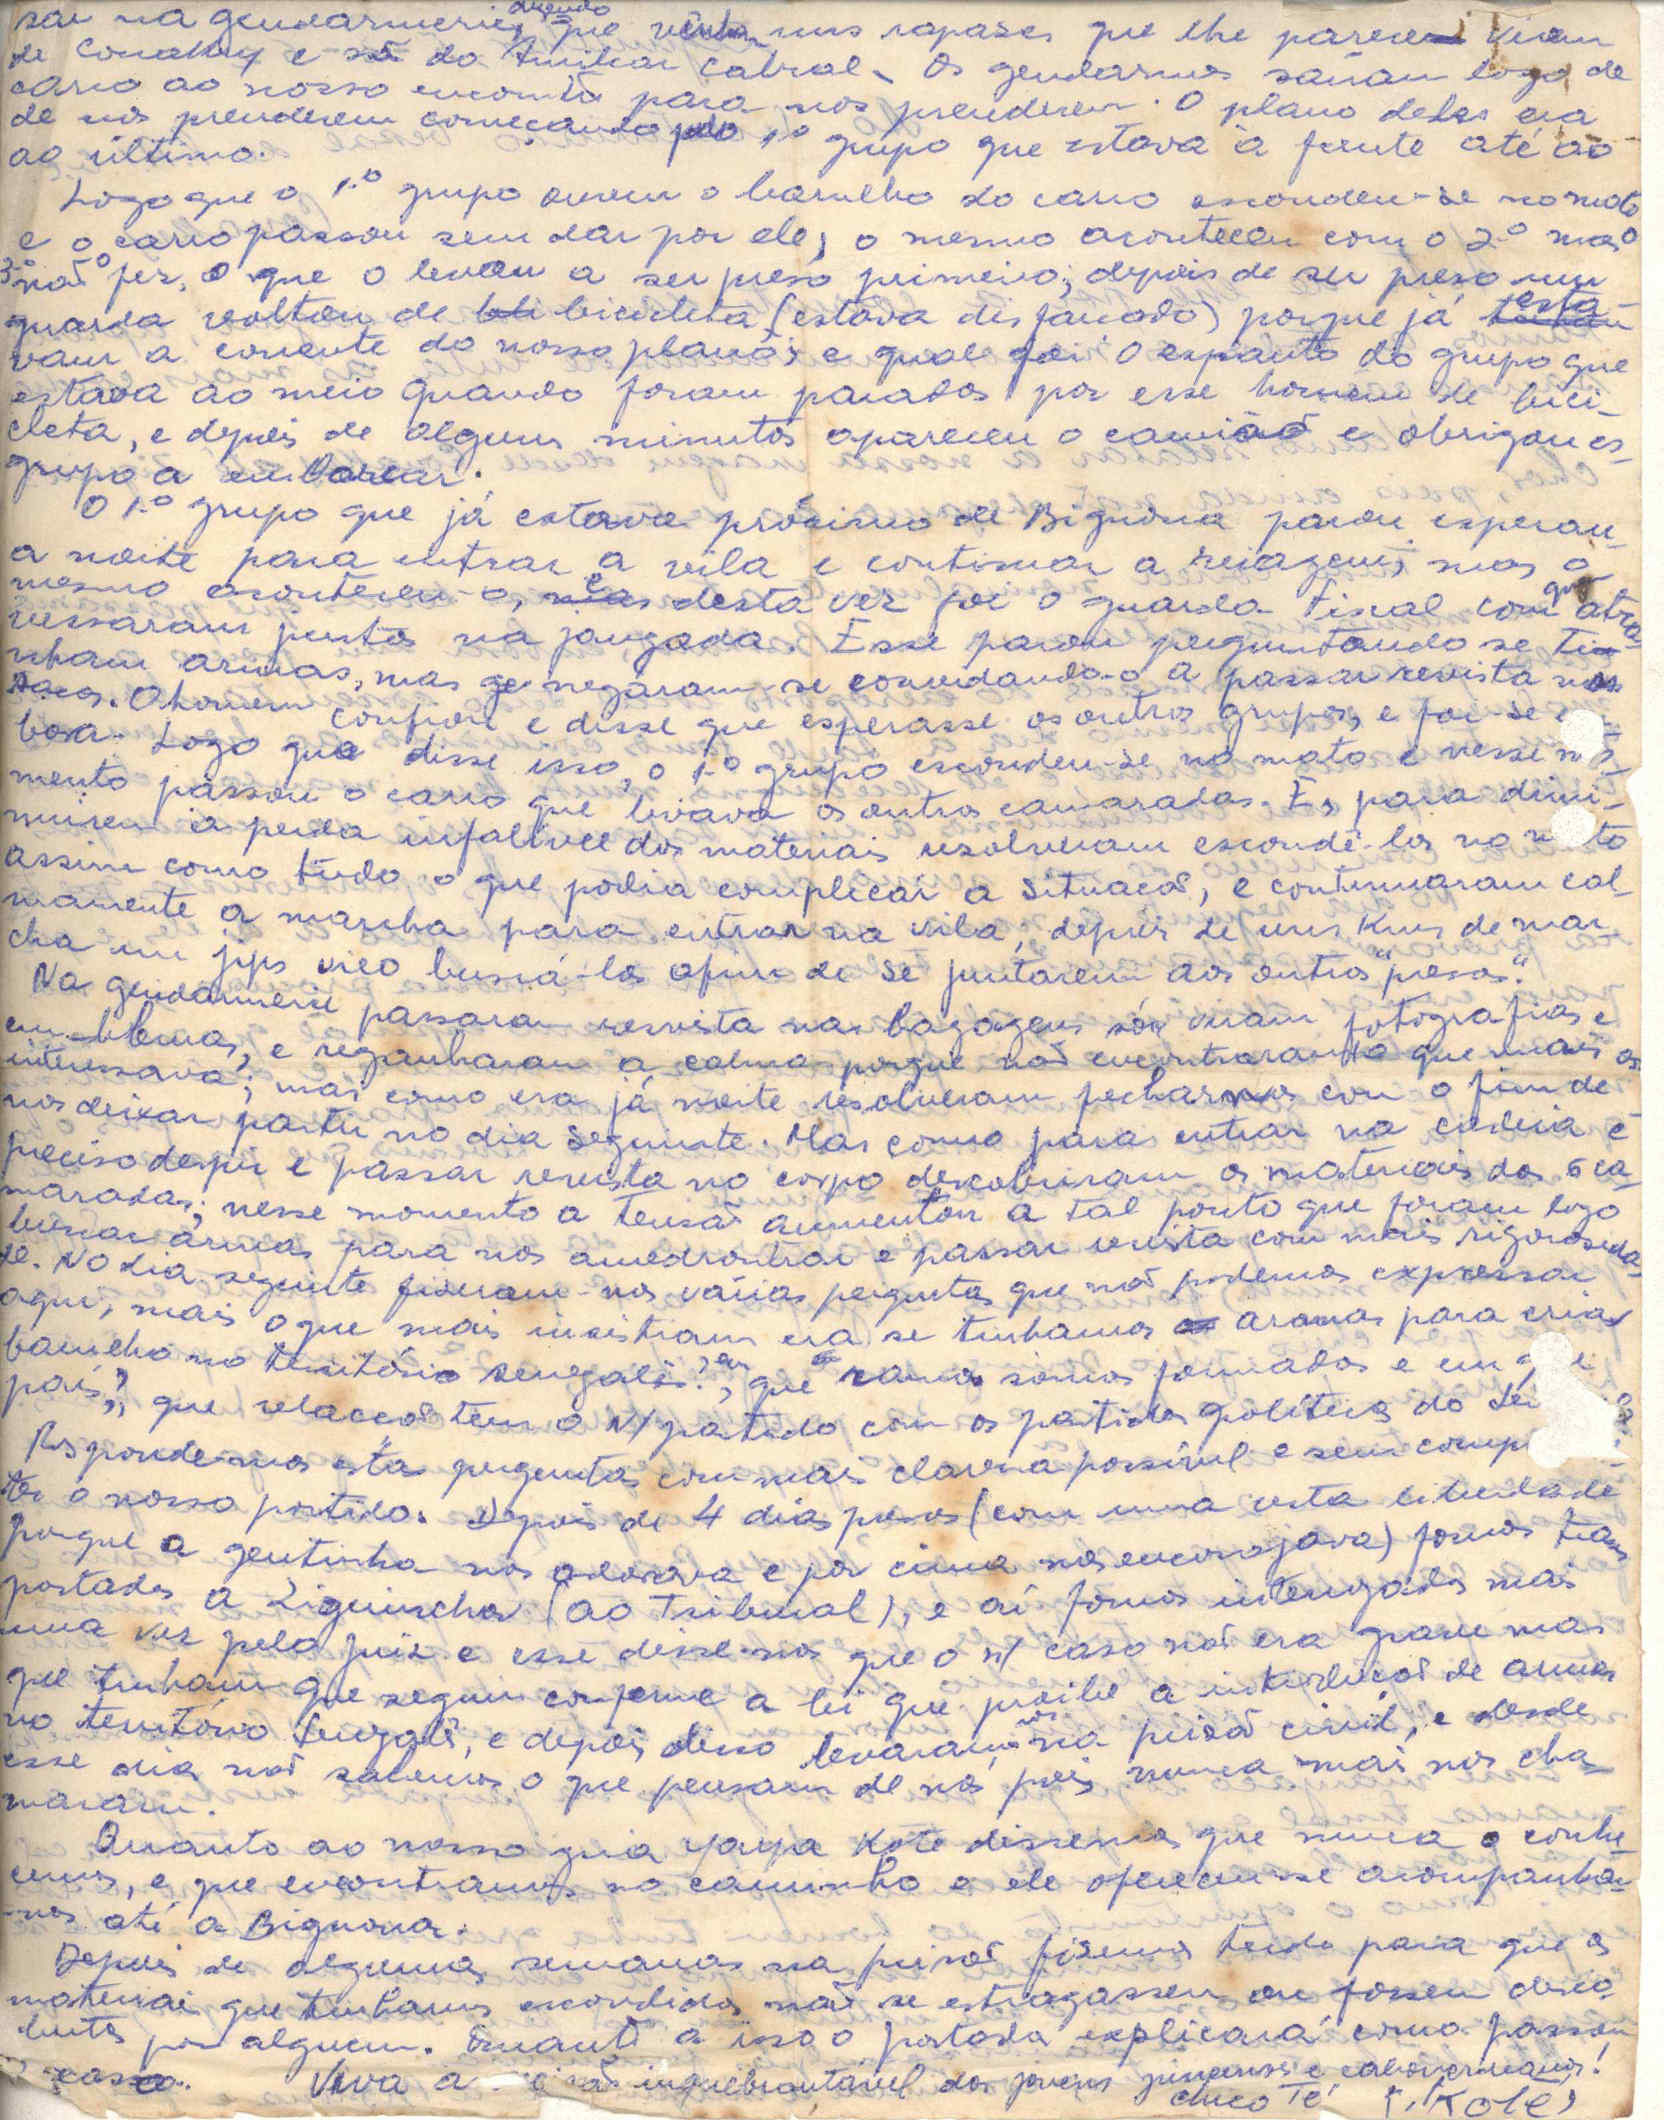 sar na gendarmerie, dizendo que vinham uns rapazes que lhe parecem viem
de Conakry e são do Amilcar Cabral. Os gendarmes saíram logo de
carro ao nosso encontro para nos prenderem. O plano deles era
de nos prenderem começando pelo 1.º grupo que estava à frente até ao
ao último.
Logo que o 1.º grupo ouviu o barulho do carro escondeu-se no mato
e o carro passou sem dar por ele; o mesmo aconteceu com o 2.º mas o
3.º não fez, o que o levou a ser preso primeiro; depois de ser preso um
guarda voltou de bicicleta (estava disfarçado) porque já esta-
vam a corrente do nosso plano; e qual foi o espanto do grupo que
estava ao meio quando foram parados por esse homem de bici-
cleta, e depois de alguns minutos apareceu o camião e obrigou es-
grupo a embarcar.
O 1.º grupo que já estava próximo de Bignona parou esperan-
a noite para entrar a vila e continuar a viagem, mas o
mesmo aconteceu-o, e desta vez foi o guarda fiscal com que atra-
vessaram juntos na jangada. Esse parou perguntando se ti-
nham armas, mas negaram-se convidando-o a passar revista nos
sacos. O homem confiou e disse que esperasse os outros grupos, e foi-se em-
bora. Logo que disse isso, o 1.º grupo escondeu-se no mato e nesse mo-
mento passou o carro que levava os outros camaradas. E, para dimi-
nuirem a perda infalível dos materiais resolveram escondê-los no mato
assim como tudo o que podia complicar a situação, e continuaram cal-
mamente a marcha para entrar na vila; depois de uns Kms de mar-
cha um jips veio buscá-los afim de se juntarem aos outros "presos".
Na gendarmerie passaram revista nas bagagens só viram fotografias e
emblemas, e reganharam a calma porque não encontraram o que mais os
interessava; mas como era já noite resolveram fechar-nos com o fim de
nos deixar partir no dia seguinte. Mas como para entrar na cadeia é
preciso despir e passar revista no corpo descobriram os materiais dos 6 ca-
maradas; nesse momento a tensão aumentou a tal ponto que foram logo
buscar armas para nos amedrontrar e passar revista com mais rigorosida-
de. No dia seguinte fizeram-nos várias perguntas que não podemos expressar
aqui, mais o que mais insistiram era se tinhamos armas para criar
barulho no território senegalês?, em que ramos somos formados e em que
país?, que relacção tem o N/ partido com os partidos políticos do
Respondemos estas perguntas com mais clareza possível e sem comp
ter o nosso partido. Depois de 4 dias presos (com uma certa liberdade
porque a gentinha nos adorava e por cima nos encorajava) fomos trans
portados a Ziguinchor (ao Tribunal), e aí fomos interrogados mais
uma vez pelo juiz e esse disse-nos que o n/ caso não era grave mas
que tinham que seguir conforme a lei que proíbe a introdução de armas
no território Senegalê, e depois disso levaram-nos na prisão civil; e desde
esse dia não sabemos o que pensam de nós pois nunca mais nos cha-
maram.
Quanto ao nosso guia Yaya Koté dissemos que nunca o conhe-
cemos, e que encontramos no caminho e ele ofereceu-se acompanhar-
-nos até a Bignona.
Depois de algumas semanas na prisão fizemos tudo para que os
materiais que tinhamos escondidos não se estragassem ou fossem desco-
bertos por alguem. Quanto a isso o portador explicará como passou
o caso. Viva a inquebrantável dos jovens guineenses e caboverdeanos!
Chico Té